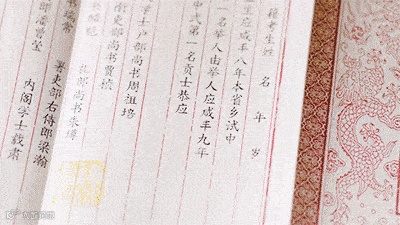 考生姓 名 年 岁
生应咸丰八年本省乡试中
一名举人由举人应咸丰九年
中式第一名贡士恭应
士户部尚书周祖培
衔吏部尚书贾桢
礼部尚书朱嶟
署吏部右侍郎梁瀚
内阁学士载肃
部潘曾莹